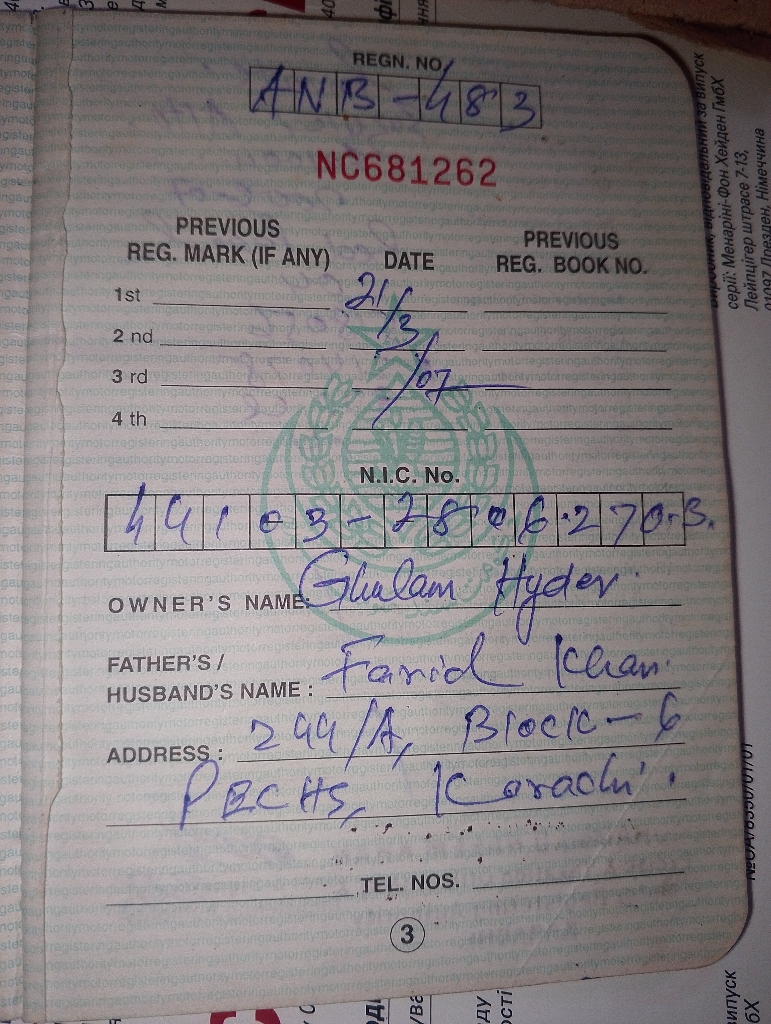 REGN. NO
ANB-483
NC681262
PREVIOUS REG. MARK (IF ANY) DATE PREVIOUS REG. BOOK NO.
1st 21/3/07
2 nd
3 rd
4 th
N.I.C. No.
44103-2806270-3.
OWNER'S NAME: Ghulam Hyder.
FATHER'S /
HUSBAND'S NAME : Farid Khan.
ADDRESS : 244/A, Block-6
PECHS, Karachi.
TEL. NOS.
3
серії: Менаріні-Фон Хейден ГмбХ
Лейпцігер штрасе 7-13,
01097 Дрезден, Німеччина